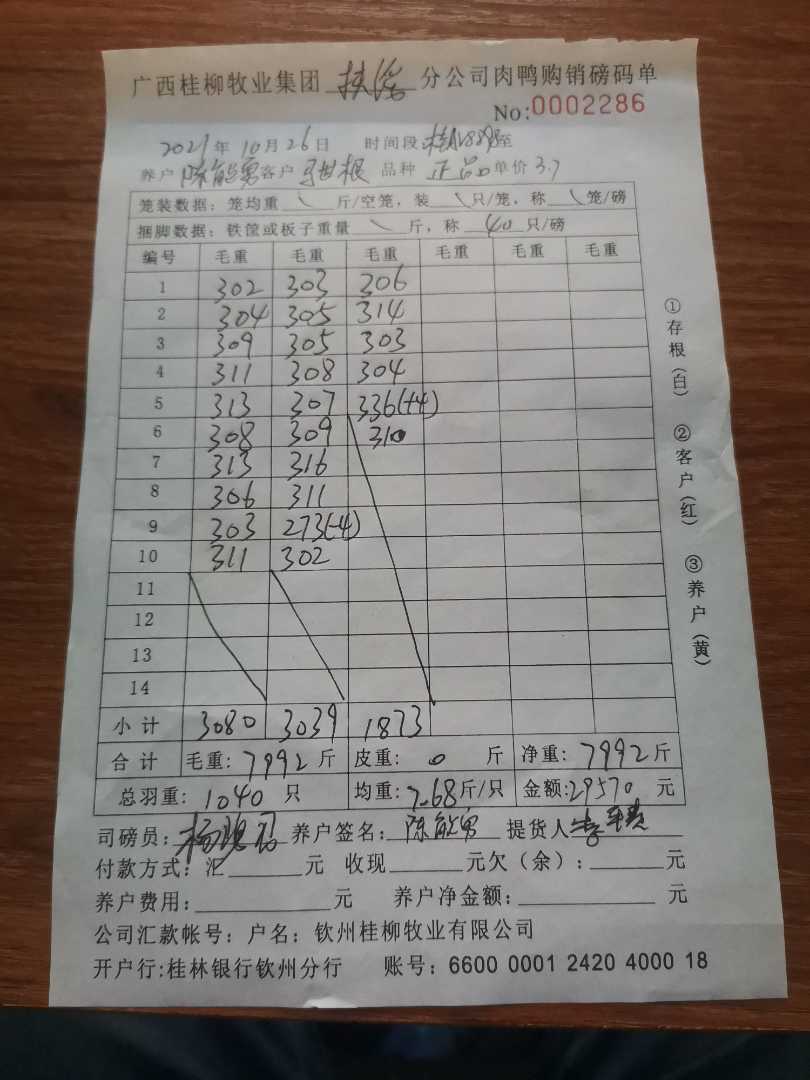 广西桂柳牧业集团 扶绥 分公司肉鸭购销磅码单
No:0002286
2021年10月26日 时间段 至
养户 陈能勇 客户 根 品种 正品 单价 3.7
笼装数据：笼均重 \ 斤/空笼，装 \ 只/笼，称 \ 笼/磅
捆脚数据：铁筐或板子重量 \ 斤，称 40 只/磅
编号 毛重 毛重 毛重 毛重 毛重 毛重
1 302 303 306
2 304 305 314
3 309 305 303
4 311 308 304
5 313 307 336(+4)
6 308 309 310
7 313 316
8 306 311
9 303 273(-4)
10 311 302
11
12
13
14
小计 3080 3039 1873
合计 毛重：7992斤 皮重：0 斤 净重：7992斤
总羽重：1040 只 均重：7.68斤/只 金额：29570 元
司磅员： 养户签名：陈能勇 提货人
付款方式：汇 元 收现 元欠（余）： 元
养户费用： 元 养户净金额： 元
公司汇款帐号：户名：钦州桂柳牧业有限公司
开户行：桂林银行钦州分行 账号：6600 0001 2420 4000 18
①存根（白） ②客户（红） ③养户（黄）